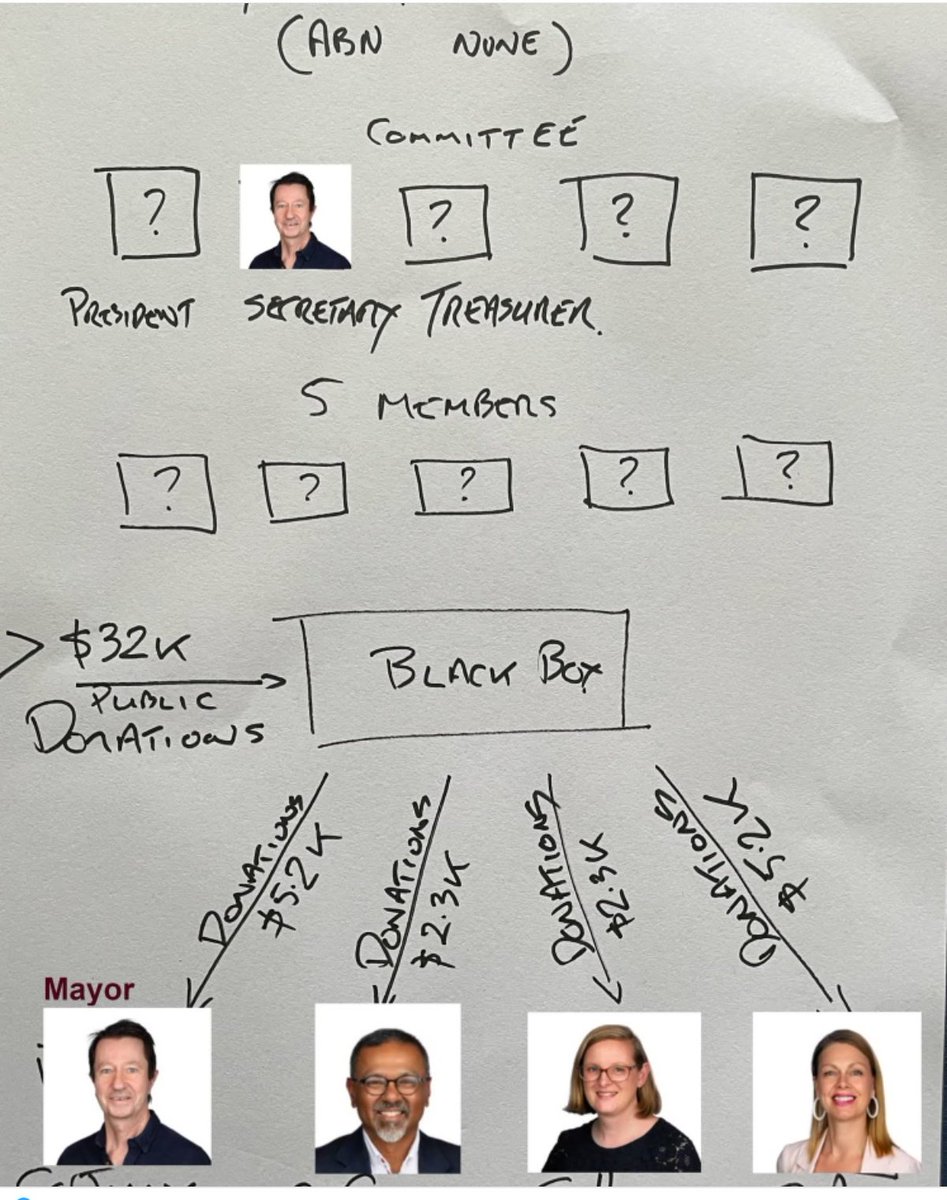 (ABN NONE)
COMMITTEE
? ? ? ?
PRESIDENT SECRETARY TREASURER.
5 MEMBERS
? ? ? ? ?
> $32K
PUBLIC
DONATIONS
BLACK BOX
DONATIONS
$5.2K
DONATIONS
$2.3K
DONATIONS
$2.3K
DONATIONS
$5.2K
Mayor